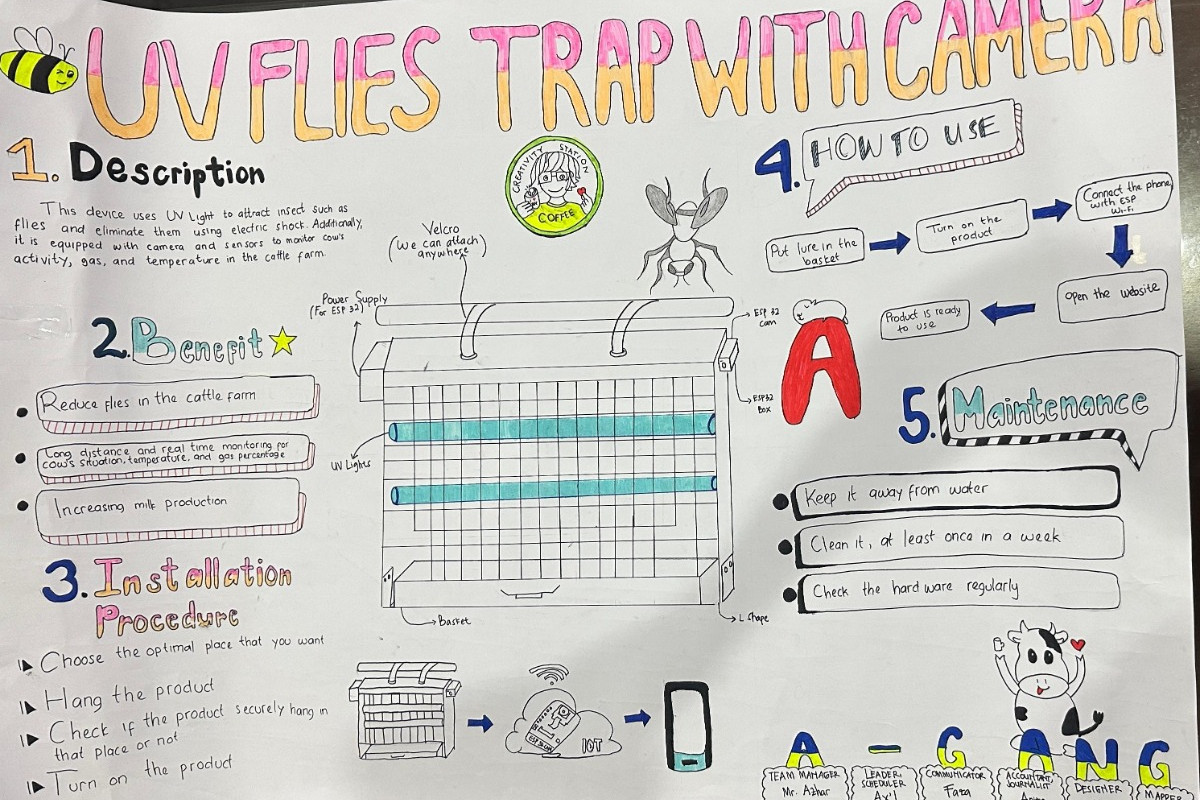 UV FLIES TRAP WITH CAMERA
1. Description
This device uses UV Light to attract insect such as
flies and eliminate them using electric shock. Additionally,
it is equipped with camera and sensors to monitor cow's
activity, gas, and temperature in the cattle farm.
2. Benefit
Reduce flies in the cattle farm
Long distance and real time monitoring for
cow's situation, temperature, and gas percentage
Increasing milk production
3. Installation
Procedure
Choose the optimal place that you want
Hang the product
Check if the product securely hang in
that place or not
Turn on the product
CREATIVITY STATION
COFFEE
Velcro
(We can attach
anywhere)
Power Supply
(For ESP 32)
ESP 32
cam
ESP32
Box
UV Lights
Basket
L Chape
IOT
4. HOW TO USE
Put lure in the
basket
Turn on the
product
Connect the phone
with ESP
Wi-Fi
Open the website
Product is ready
to use
A
5. Maintenance
Keep it away from water
Clean it, at least once in a week
Check the hard ware regularly
A - G A N G
TEAM MANAGER
Mr. Azhar
LEADER,
SCHEDULER
Ax'l
COMMUNICATOR
Faza
ACCOUNTANT,
JOURNALIST
DESIGNER
MAPPER